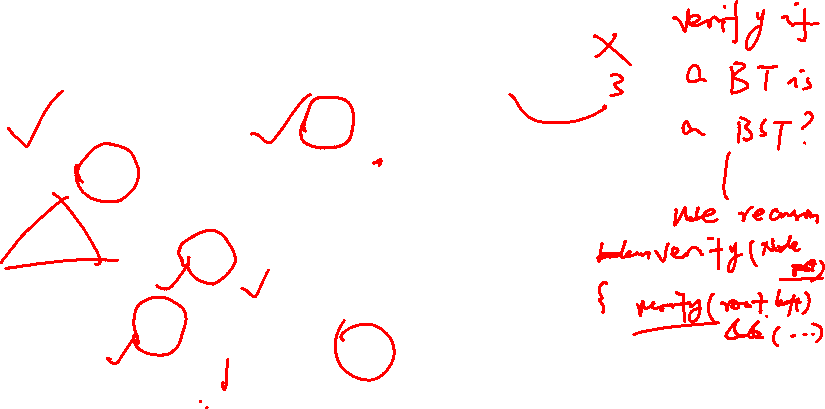 3
verify if
a BT is
a BST?
use recursion
boolean verify(Node
root)
{ verify(root.left)
&& (...)